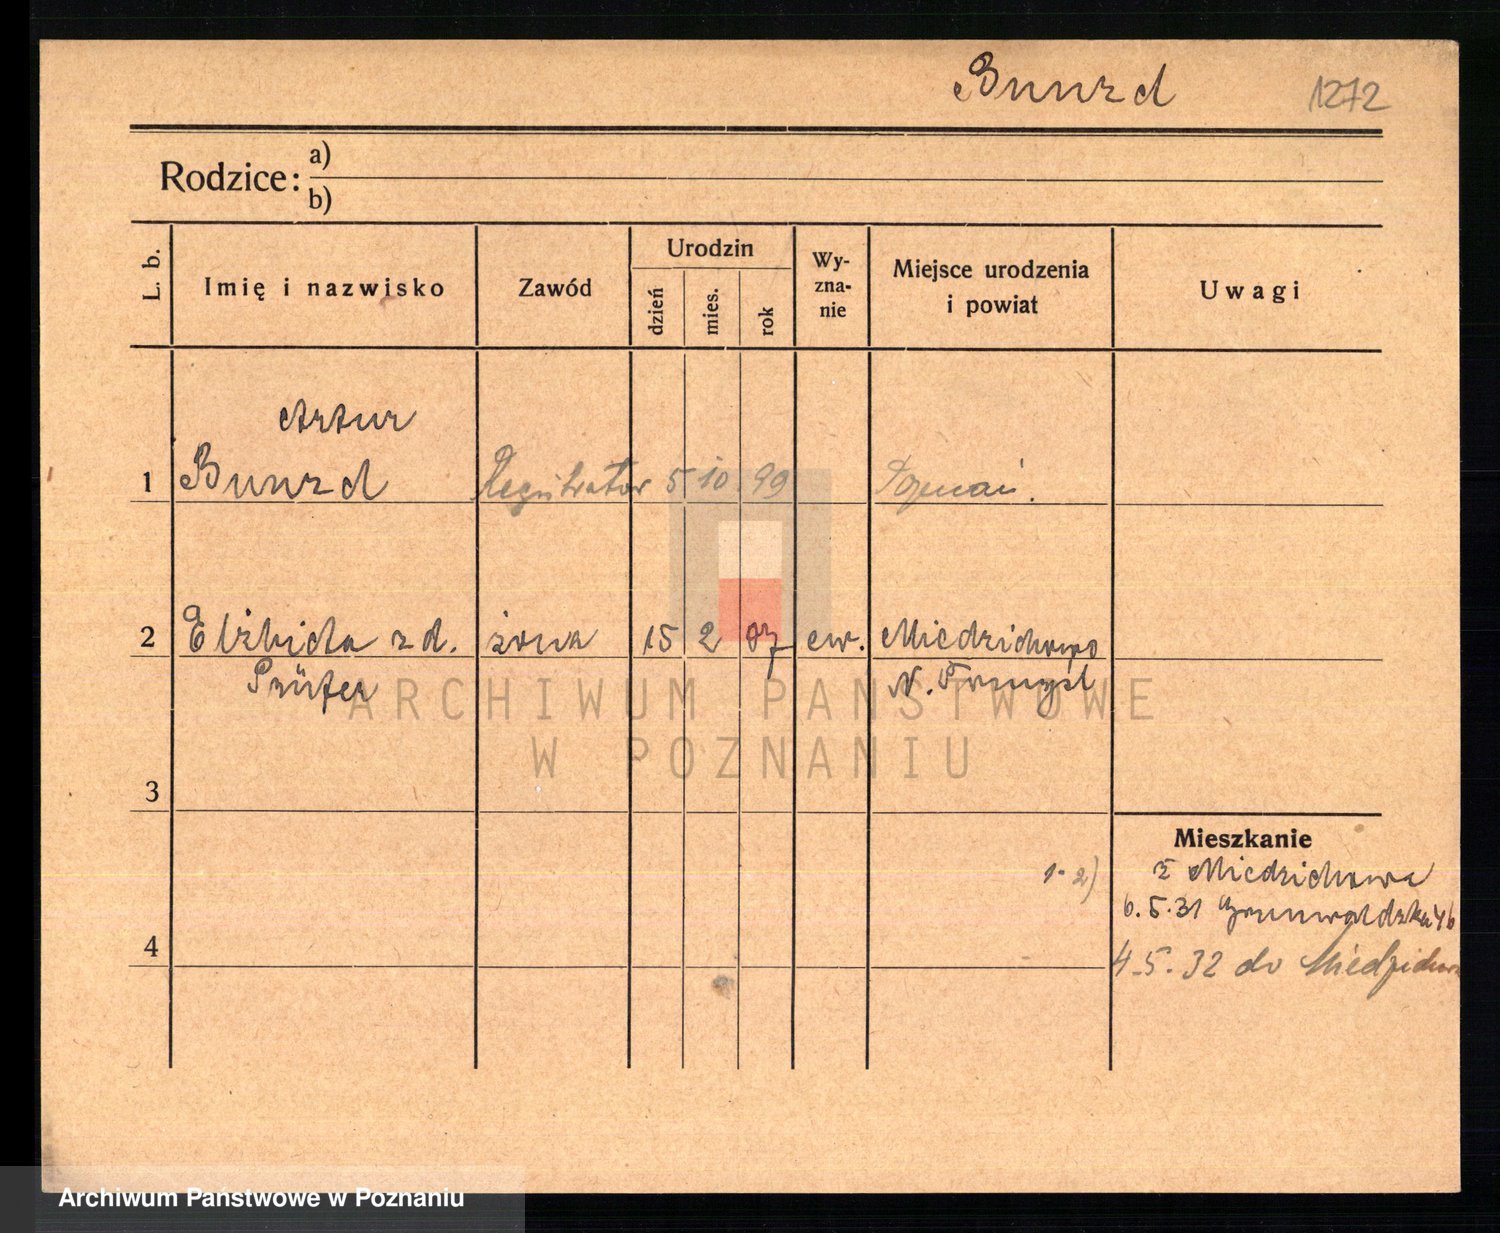 Bunrd 1272
Rodzice: a)
b)
L. b. Imię i nazwisko Zawód Urodzin dzień mies. rok Wy-zna-nie Miejsce urodzenia i powiat Uwagi
Artur
1 Bunrd Registrator 5 10 99 Poznań.
2 Elżbieta z d. żona 15 2 07 ew. Miedzichowo
Prüfer N. Tomyśl
ARCHIWUM PAŃSTWOWE
W POZNANIU
3
Mieszkanie
1-2) z Miedzichowa
6.5.31 Grunwaldzka 46
4 4.5.32 do Miedzichowa
Archiwum Państwowe w Poznaniu